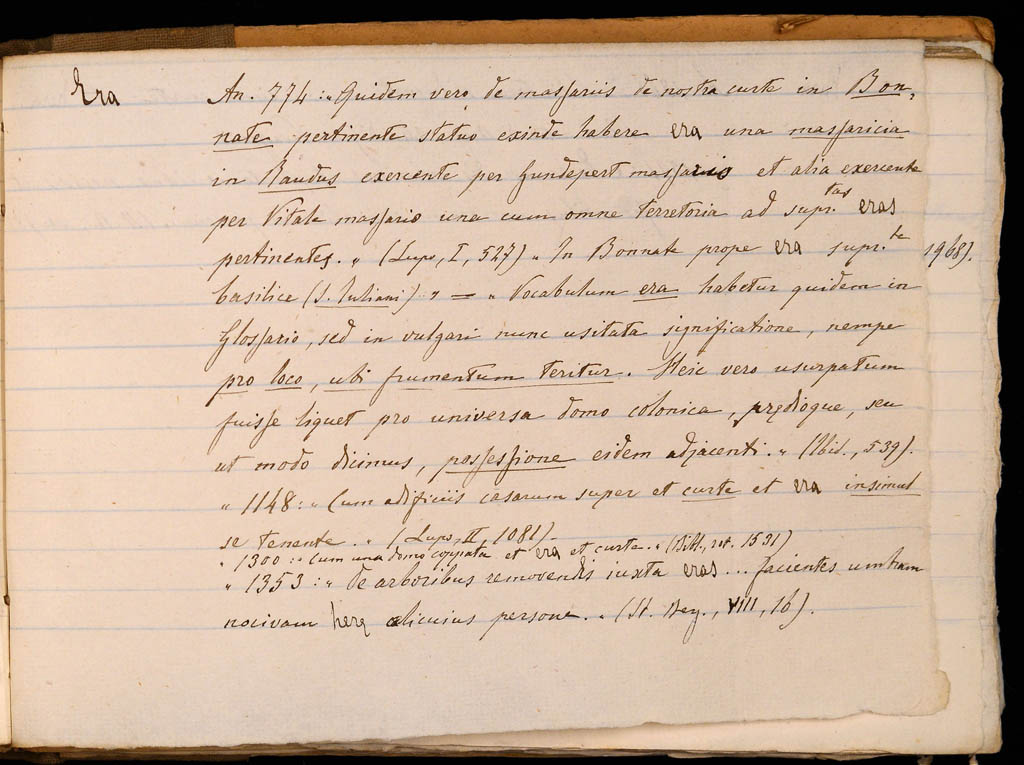 Era
An. 774: „ Quidem vero de massariis de nostra curte in Bon-
nate pertinente statuo exinde habere era una massaricia
in Raudus exercente per Gundepert massario et alia exercente
per Vitale massario una cum omne terretoria ad supr.tas eras
pertinentes. „ (Lupo, I, 527) „ In Bonnate prope era supr.te
basilice (S. Iuliani): „ = „ Vocabulum era habetur quidem in
Glossario, sed in vulgari nunc usitata significatione, nempe
pro loco, ubi frumentum teritur. Heic vero usurpatum
fuisse liquet pro universa domo colonica, prędioque, seu
ut modo dicimus, possessione eidem adjacenti. „ (Ibid., 539).
„ 1148: „ Cum adificiis casarum super et curte et era insimul
se tenente. „ (Lupo, II, 1081).
„ 1300: „ Cum una domo coppata et era et curte. „ (Bibl., rot. 1531)
„ 1353: „ De arboribus removendis iuxta eras... facientes umbram
nocivam herę alicuius persone. „ (St. Berg., VIII, 16).
1968).